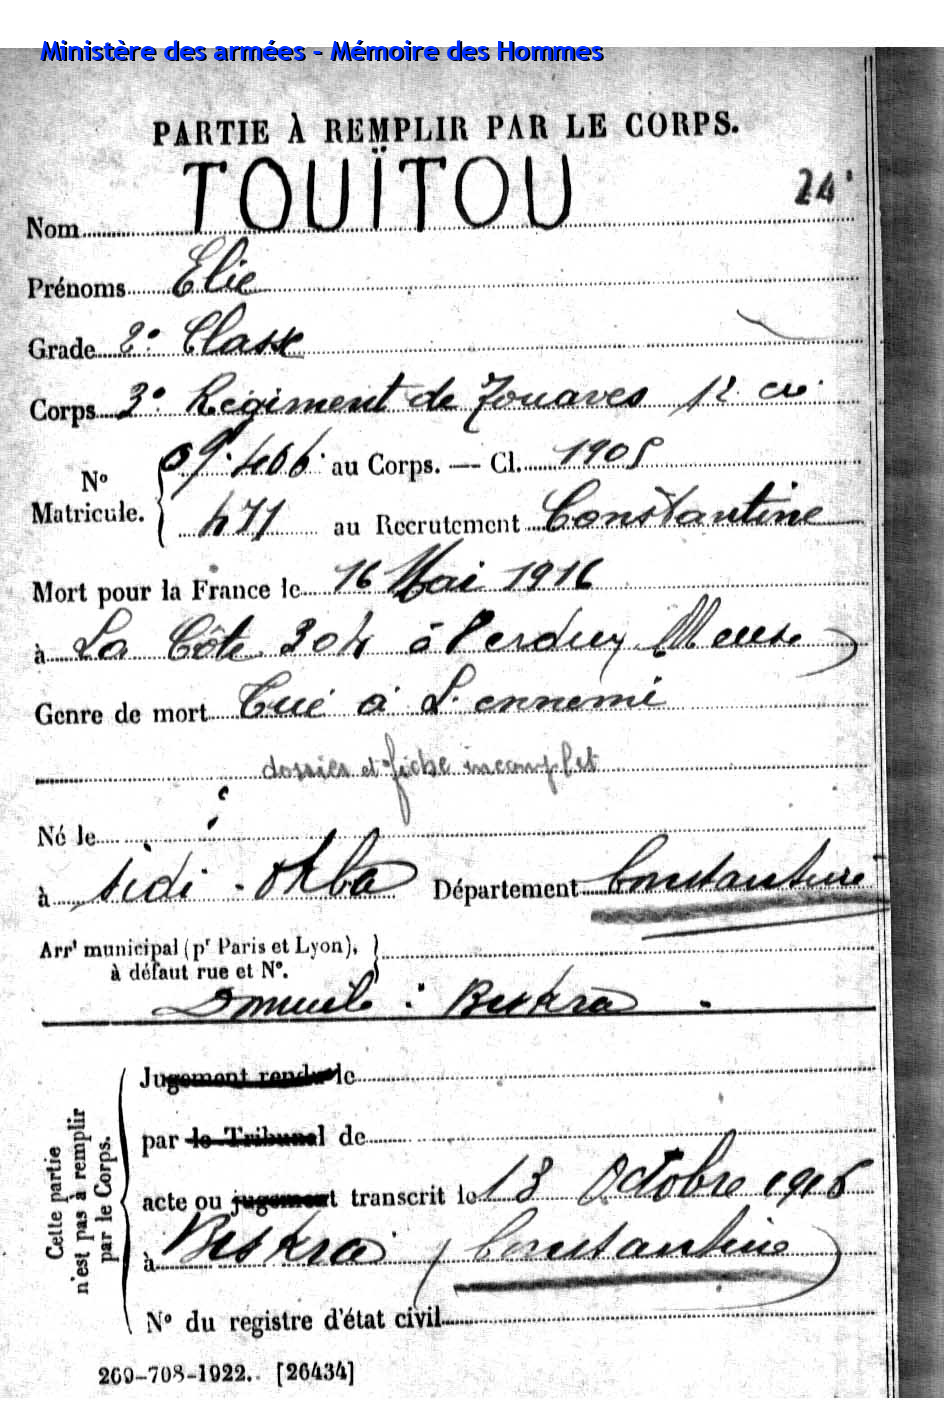 Ministère des armées - Mémoire des Hommes
PARTIE À REMPLIR PAR LE CORPS.
24
Nom TOUÏTOU
Prénoms Elie
Grade 2e Classe
Corps 3e Régiment de Zouaves 12 cie
No Matricule. 09.406 au Corps. — Cl. 1905
471 au Recrutement Constantine
Mort pour la France le 16 Mai 1916
à La Côte 304 à Verdun Meuse)
Genre de mort Tué à L'ennemi
dossier et fiche incomplet
Né le
à sidi-okba Département Constantine
Arrt municipal (pr Paris et Lyon),
à défaut rue et No.
Domicile : Biskra
Cette partie n'est pas à remplir par le Corps.
Jugement rendu le
par le Tribunal de
acte ou jugement transcrit le 13 Octobre 1916
à Biskra (Constantine)
No du registre d'état civil
269-708-1922. [26434]